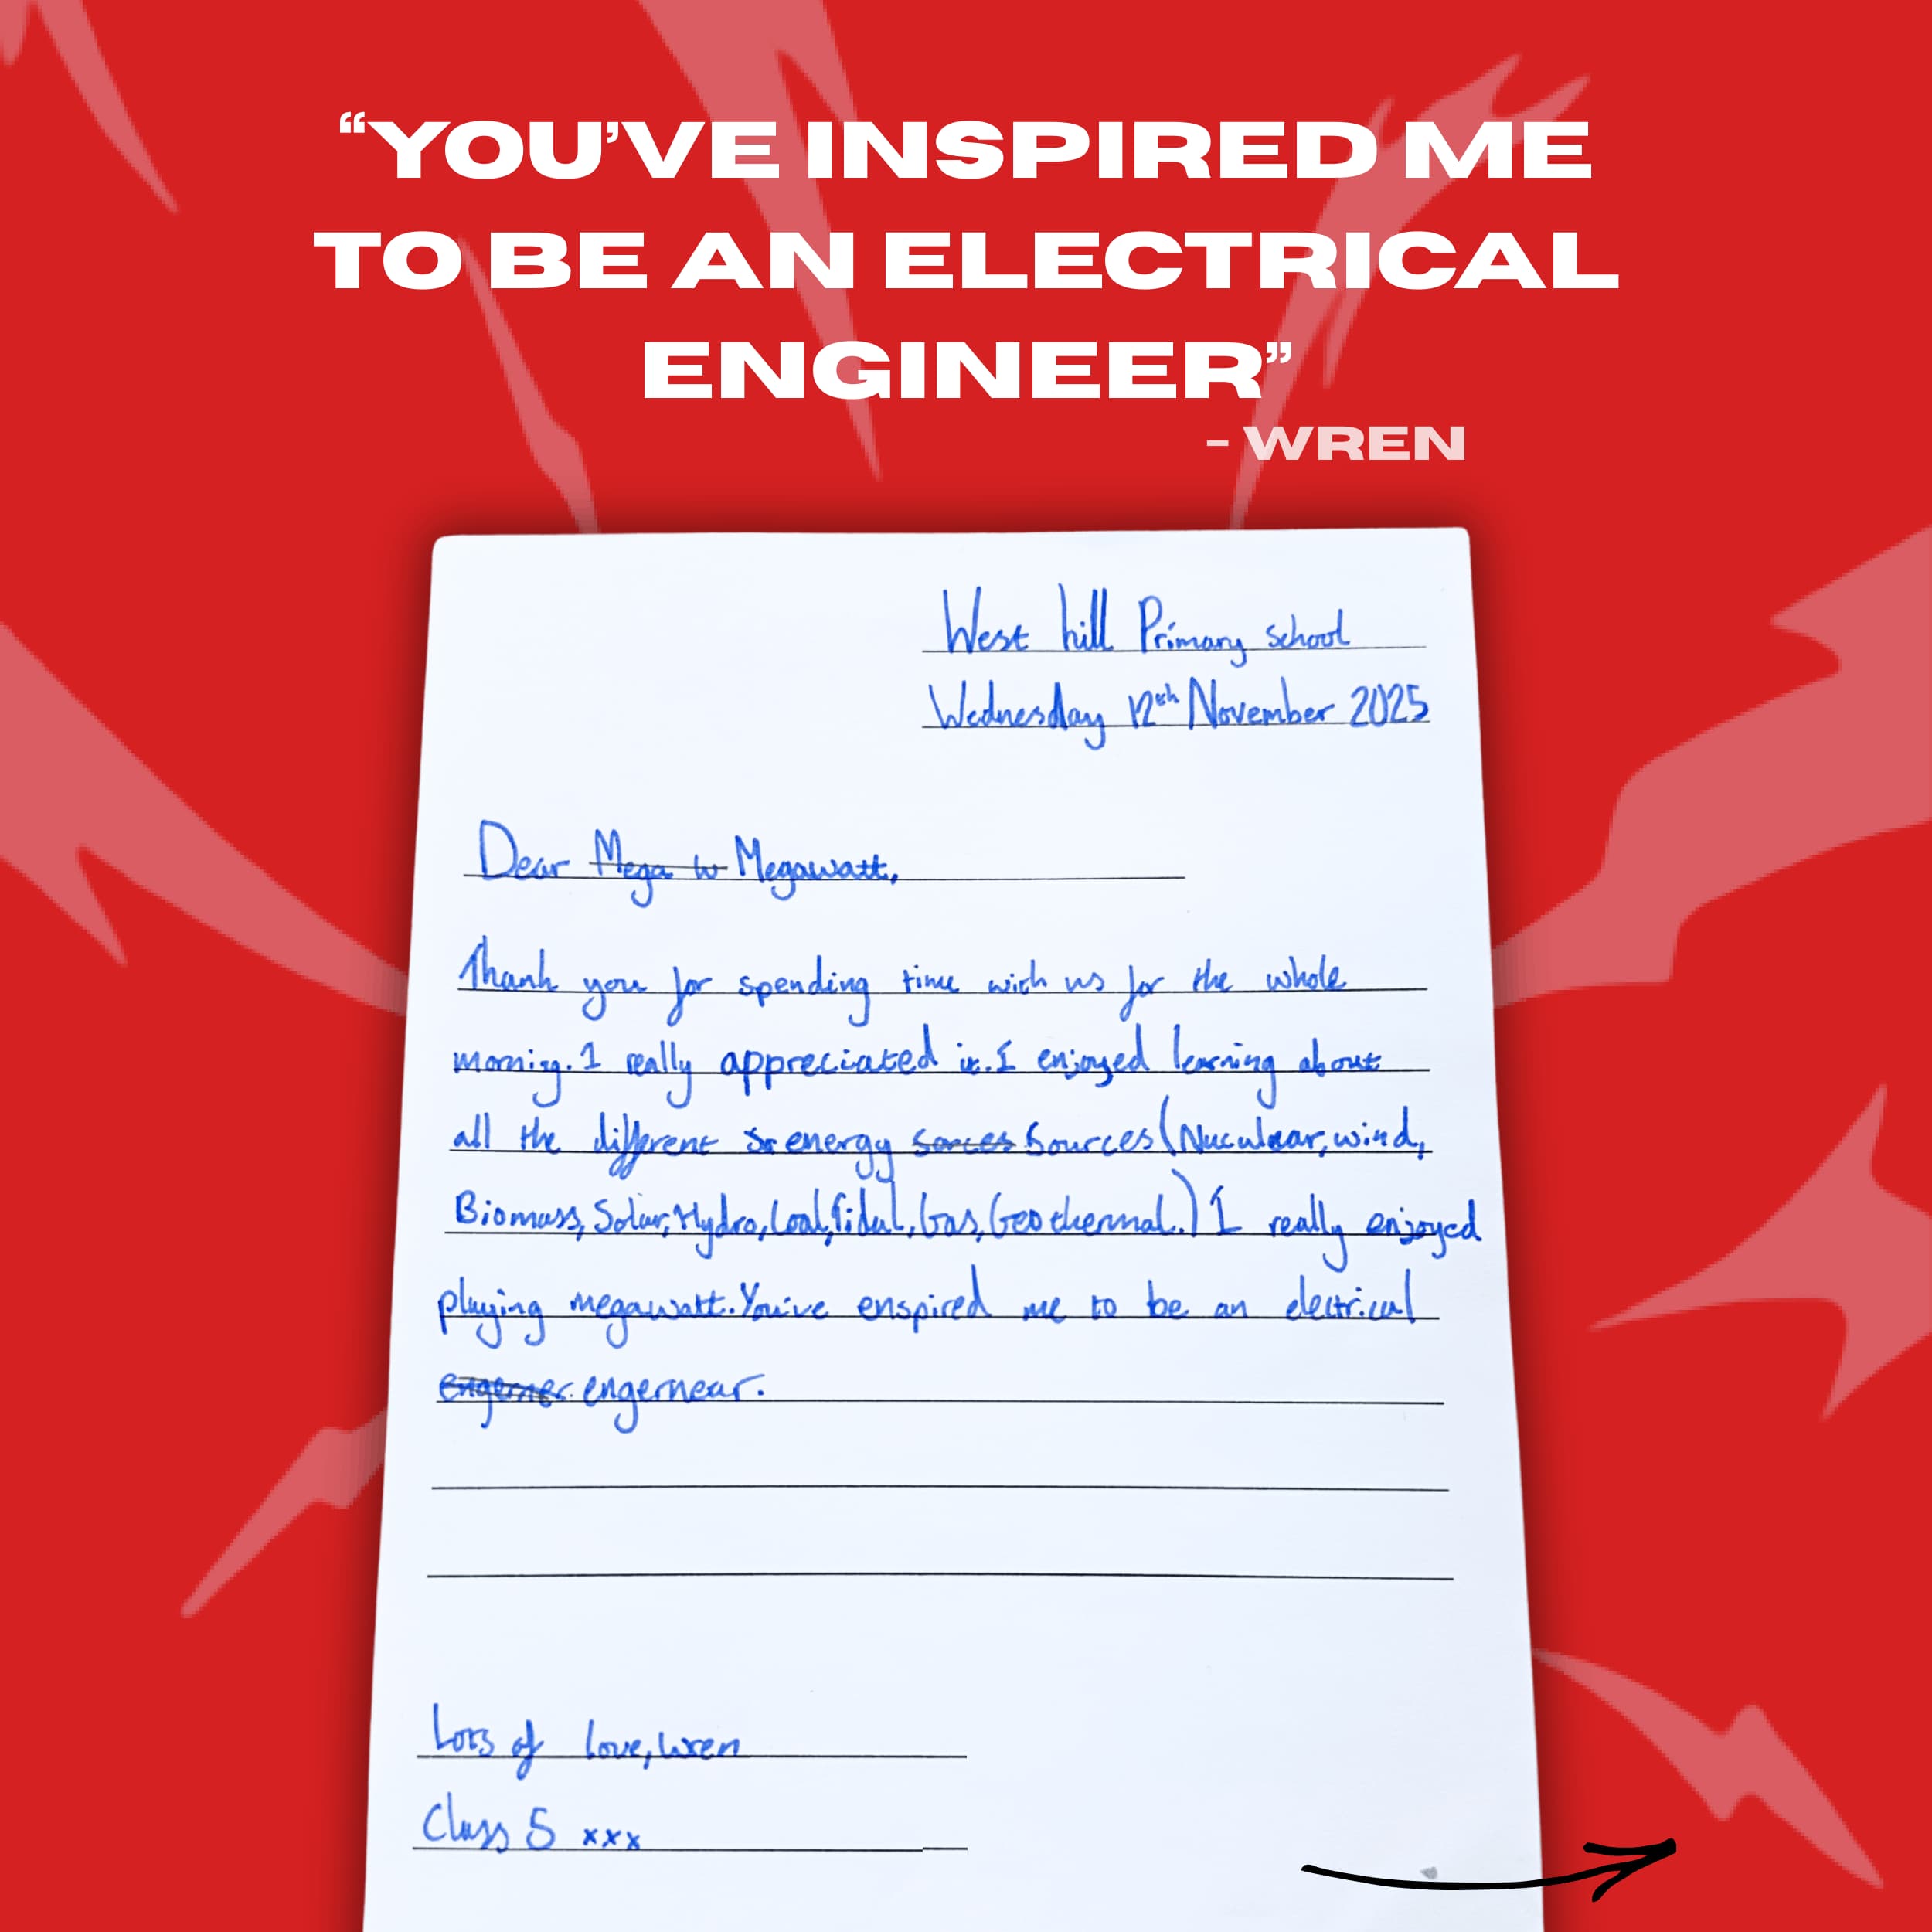 “YOU’VE INSPIRED ME
TO BE AN ELECTRICAL
ENGINEER”
- WREN
West hill Primary school
Wednesday 12th November 2025
Dear Mega w Megawatt,
Thank you for spending time with us for the whole
mornig. I really appreciated it. I enjoyed learning about
all the different So energy sorces Sources (Nuculear, wind,
Biomass, Solar, Hydro, Coal, Tidal, Gas, Geothermal.) I really enjoyed
playing megawatt. You've enspired me to be an electrical
engernear.
Lots of love, wren
Class 5 xxx